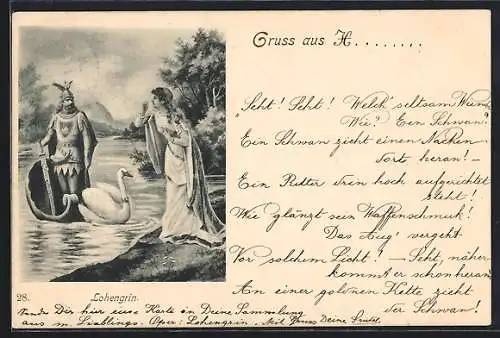 Gruss aus H........
"Seht! Seht! Welch' seltsam Wunder
Wie? Ein Schwan?
Ein Schwan zieht einen Nachen
dort heran! –
Ein Ritter drin hoch aufgerichtet
steht!
Wie glänzt sein Waffenschmuck!
Das Aug' vergeht
Vor solchem Licht! – Seht, näher
kommt er schon heran
An einer goldnen Kette zieht
der Schwan!
28.
Lohengrin.
Sende Dir hier eine Karte in Deine Sammlung
aus m. Lieblings-Oper: Lohengrin. Mit Gruss Deine